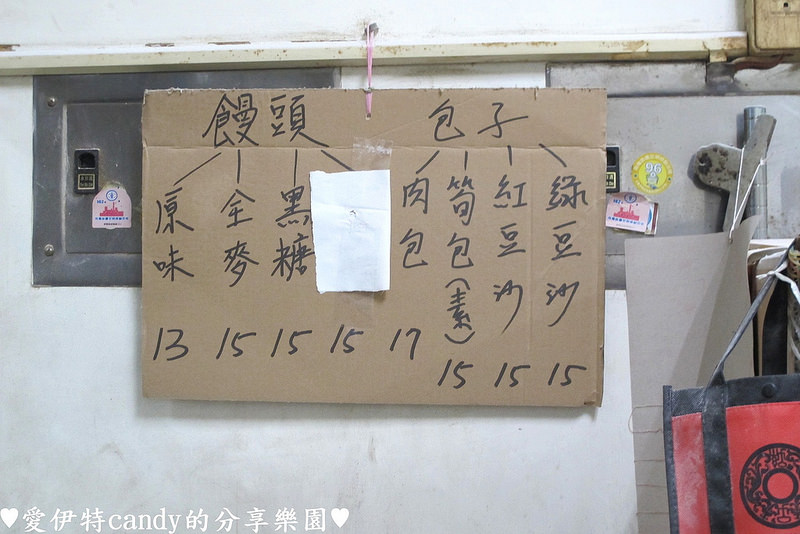 饅頭 包子
原味 全麥 黑糖 肉包 筍包(素) 紅豆沙 綠豆沙
13 15 15 15 17 15 15 15
96
♥愛伊特candy的分享樂園♥